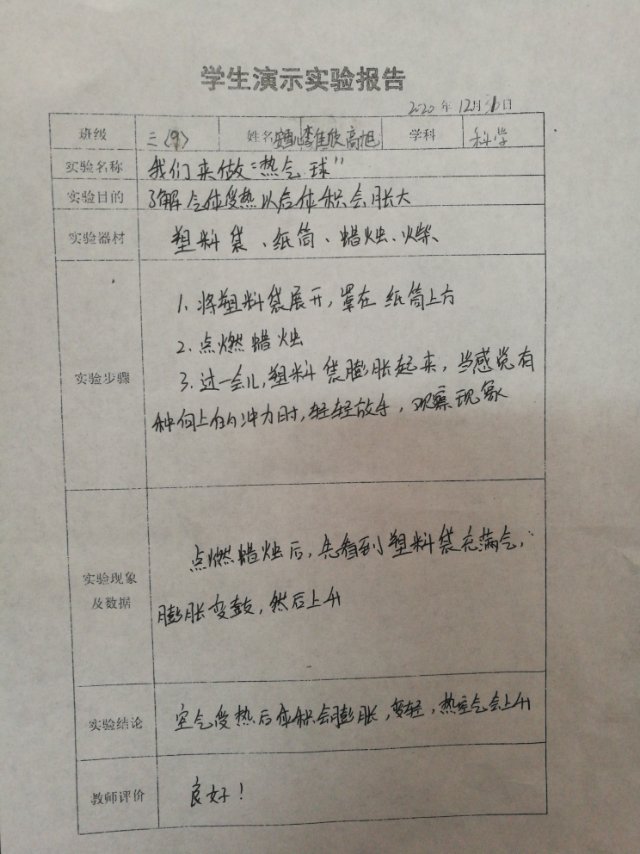 学生演示实验报告
2020年12月31日
班级 三〈9〉 姓名 李佳欣 高旭 学科 科学
实验名称 我们来做“热气球”
实验目的 了解气体受热以后体积会胀大
实验器材 塑料袋、纸筒、蜡烛、火柴、
实验步骤 1. 将塑料袋展开，罩在纸筒上方
2. 点燃蜡烛
3. 过一会儿，塑料袋膨胀起来，当感觉有
种向上的冲力时，轻轻放手，观察现象
实验现象及数据 点燃蜡烛后，先看到塑料袋充满气，
膨胀变鼓，然后上升
实验结论 空气受热后体积会膨胀，变轻，热空气会上升
教师评价 良好！